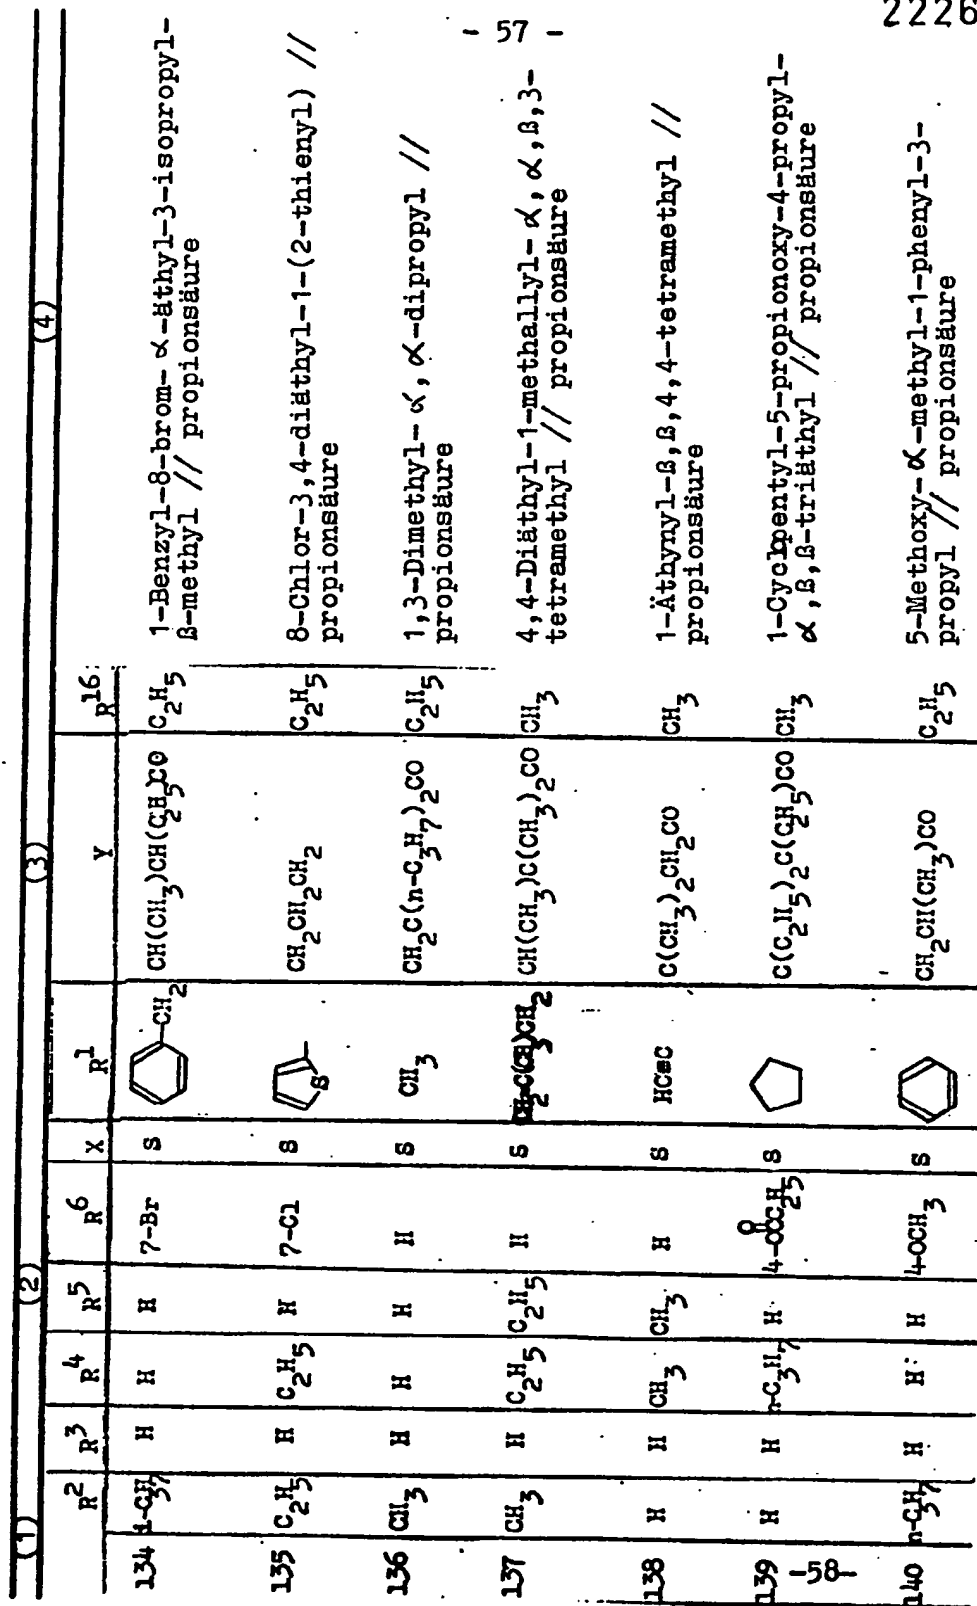 2226
- 57 -
(1) (2) (3) (4)
R2 R3 R4 R5 R6 X R1 Y R16
134 i-C3H7 H H H 7-Br S CH2 CH(CH3)CH(C2H5)CO C2H5 1-Benzyl-8-brom-α-äthyl-3-isopropyl-
ß-methyl // propionsäure
135 C2H5 H C2H5 H 7-Cl S S CH2CH2CH2 C2H5 8-Chlor-3,4-diäthyl-1-(2-thienyl) //
propionsäure
136 CH3 H H H H S CH3 CH2C(n-C3H7)2CO C2H5 1,3-Dimethyl-α,α-dipropyl //
propionsäure
137 CH3 H C2H5 C2H5 H S CH2=C(CH3)CH2 CH(CH3)C(CH3)2CO CH3 4,4-Diäthyl-1-methallyl-α,α,ß,3-
tetramethyl // propionsäure
138 H H CH3 CH3 H S HC≡C C(CH3)2CH2CO CH3 1-Äthynyl-ß,ß,4,4-tetramethyl //
propionsäure
139 H H n-C3H7 H 4-OCC2H5 O S C(C2H5)2C(C2H5)CO CH3 1-Cyclopentyl-5-propionoxy-4-propyl-
α,ß,ß-triäthyl // propionsäure
140 n-C3H7 H H H 4-OCH3 S CH2CH(CH3)CO C2H5 5-Methoxy-α-methyl-1-phenyl-3-
propyl // propionsäure
-58-